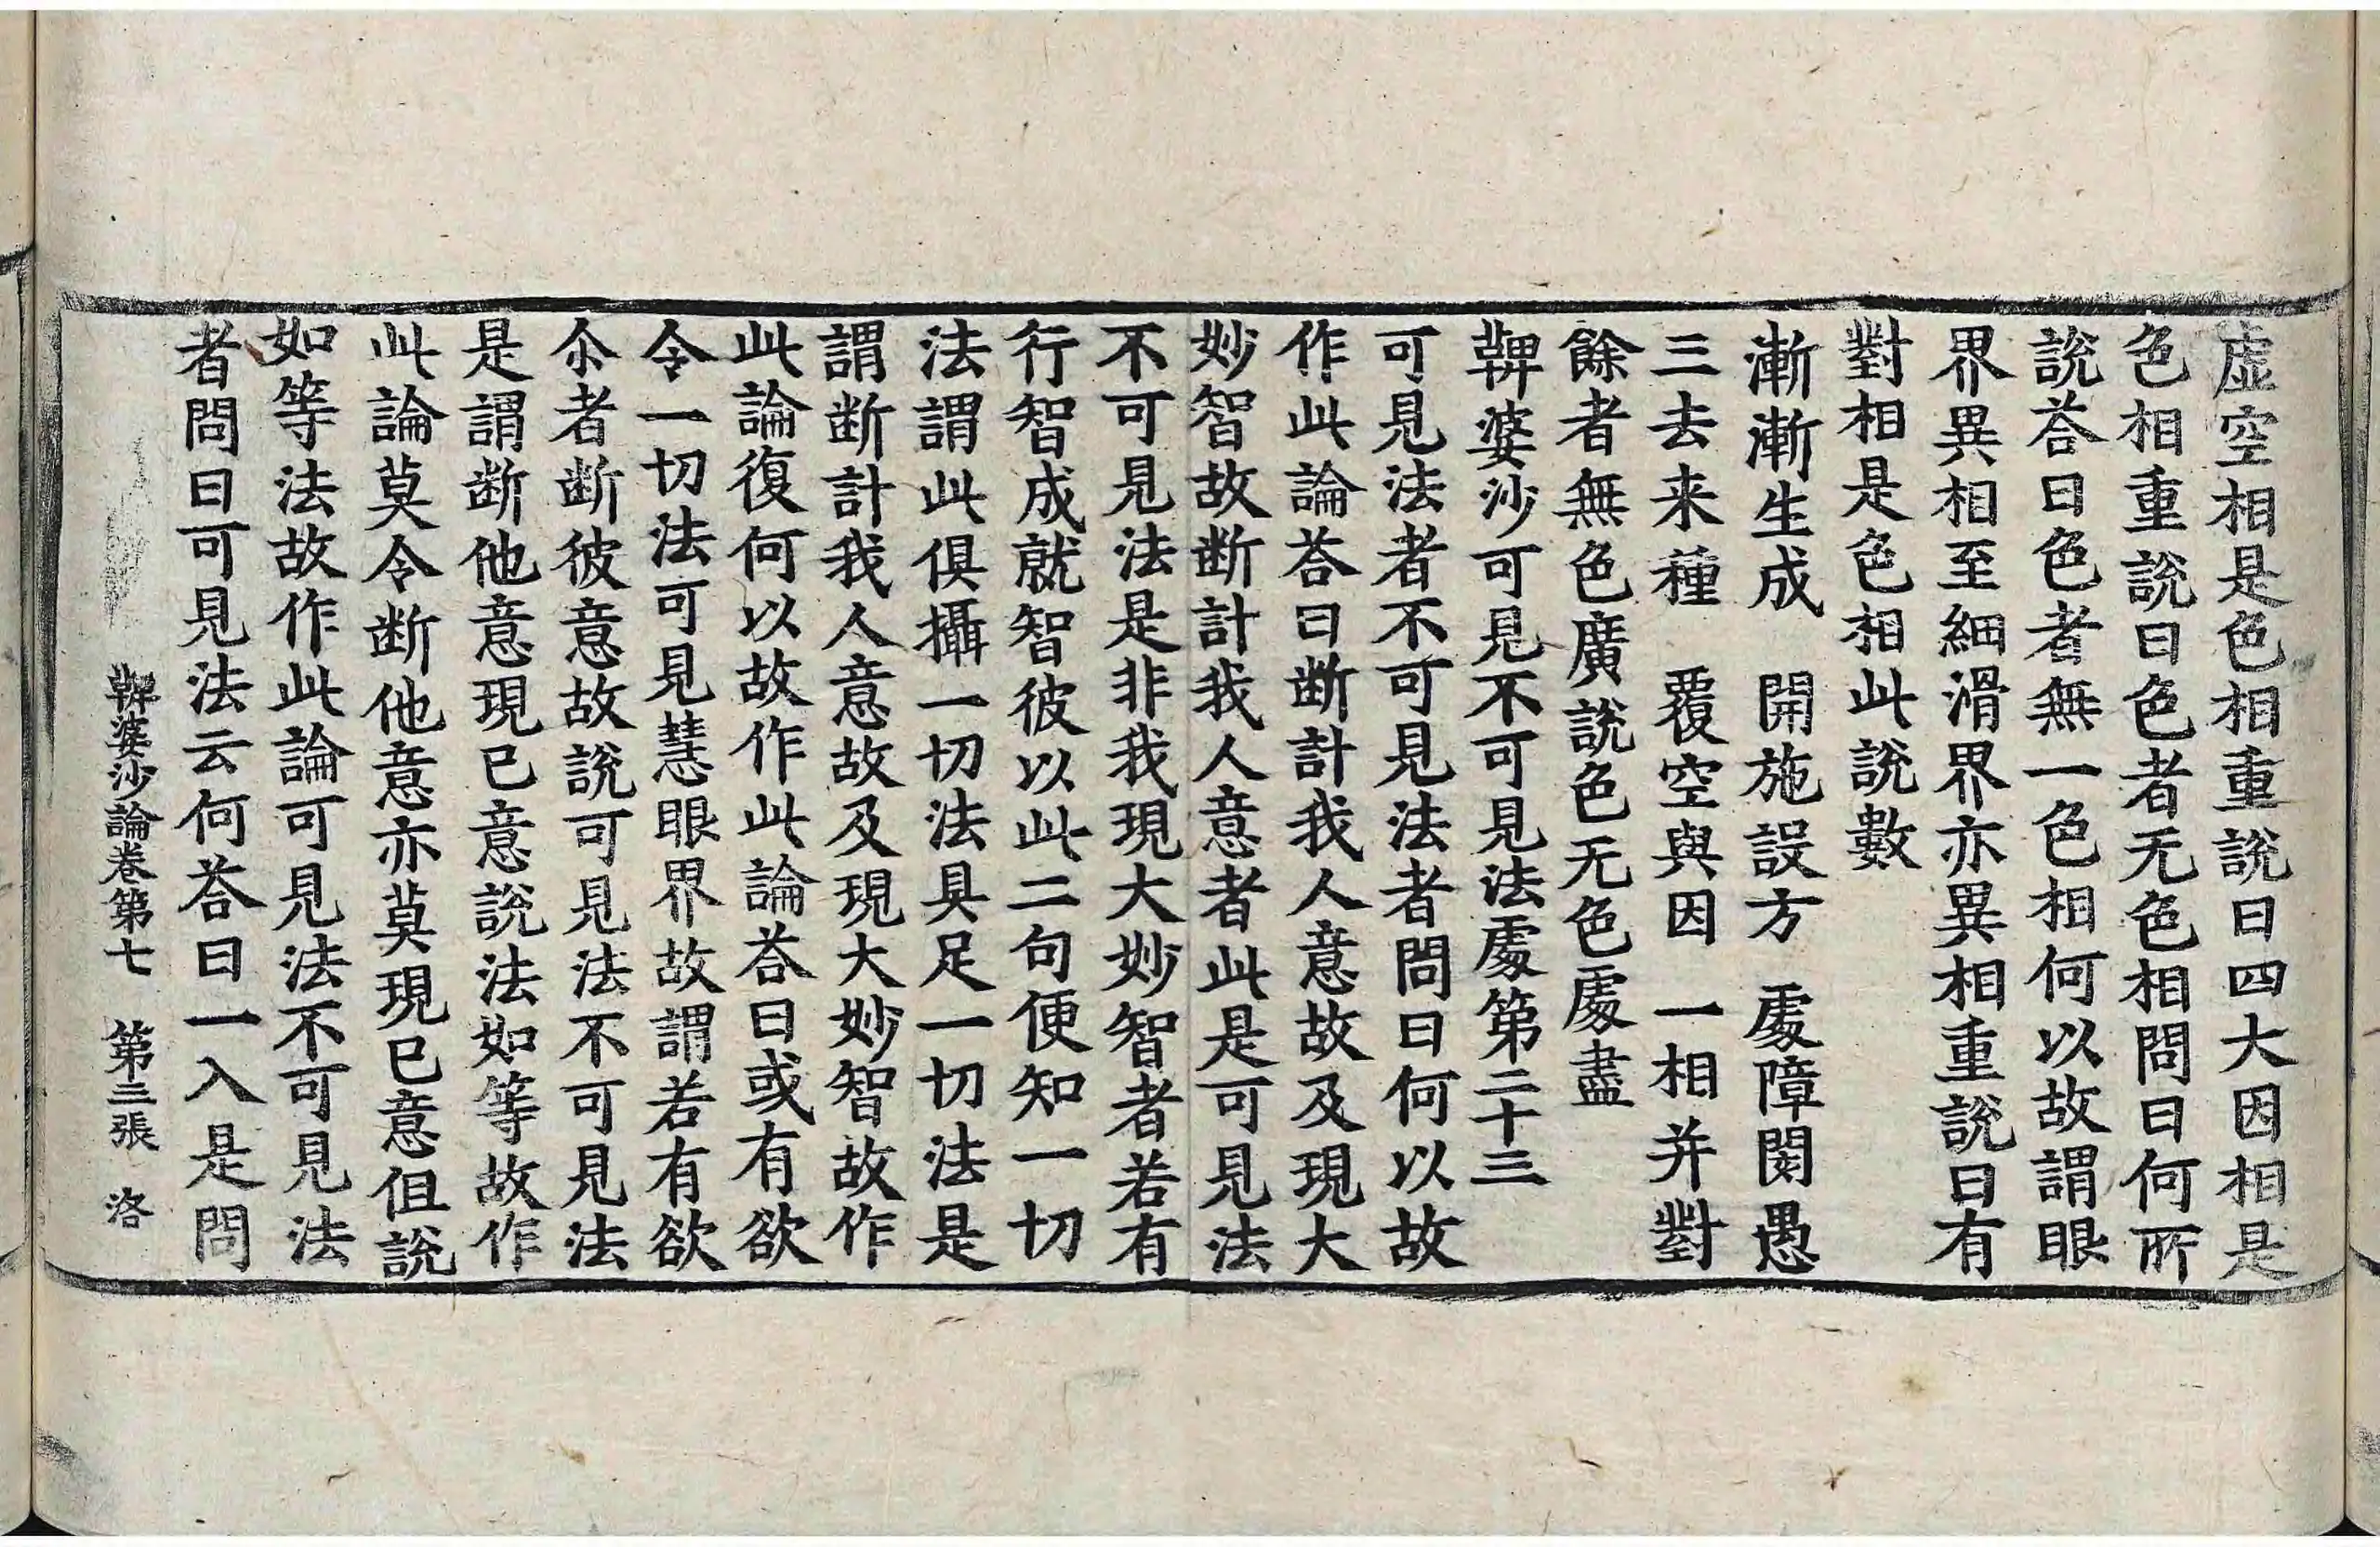 虛空相是色相重說曰四大因相是
色相重說曰色者无色相問曰何所
說荅曰色者無一色相何以故謂眼
界異相至細滑界亦異相重說曰有
對相是色相此說數
漸漸生成　開施設方　處障閡愚
三去来種　覆空與因　一相并對
餘者無色廣說色无色處盡
鞞婆沙可見不可見法處第二十三
可見法者不可見法者問曰何以故
作此論荅曰断計我人意故及現大
妙智故断計我人意者此是可見法
不可見法是非我現大妙智者若有
行智成就智彼以此二句便知一切
法謂此俱攝一切法具足一切法是
謂断計我人意故及現大妙智故作
此論復何以故作此論荅曰或有欲
令一切法可見慧眼界故謂若有欲
尒者断彼意故說可見法不可見法
是謂断他意現已意說法如等故作
此論莫令断他意亦莫現已意但說
如等法故作此論可見法不可見法
者問曰可見法云何荅曰一入是問
鞞婆沙論卷第七　第三張　洛